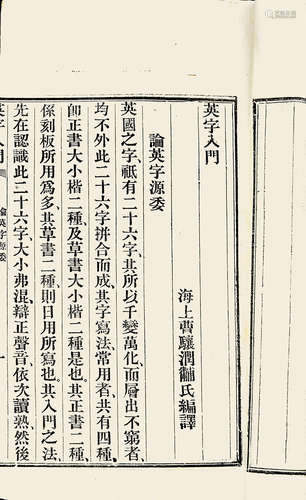 英字入門
海上曹驤潤黼氏編譯
論英字源委
英國之字祇有二十六字其所以千變萬化而層出不窮者
均不外此二十六字拼合而成其字寫法常用者共有四種
卽正書大小楷二種及草書大小楷二種是也其正書二種
係刻板所用爲多其草書二種則日用所寫也其入門之法
先在認識此二十六字大小弗混辯正聲音依次讀熟然後
英字入門
論英字源委
一